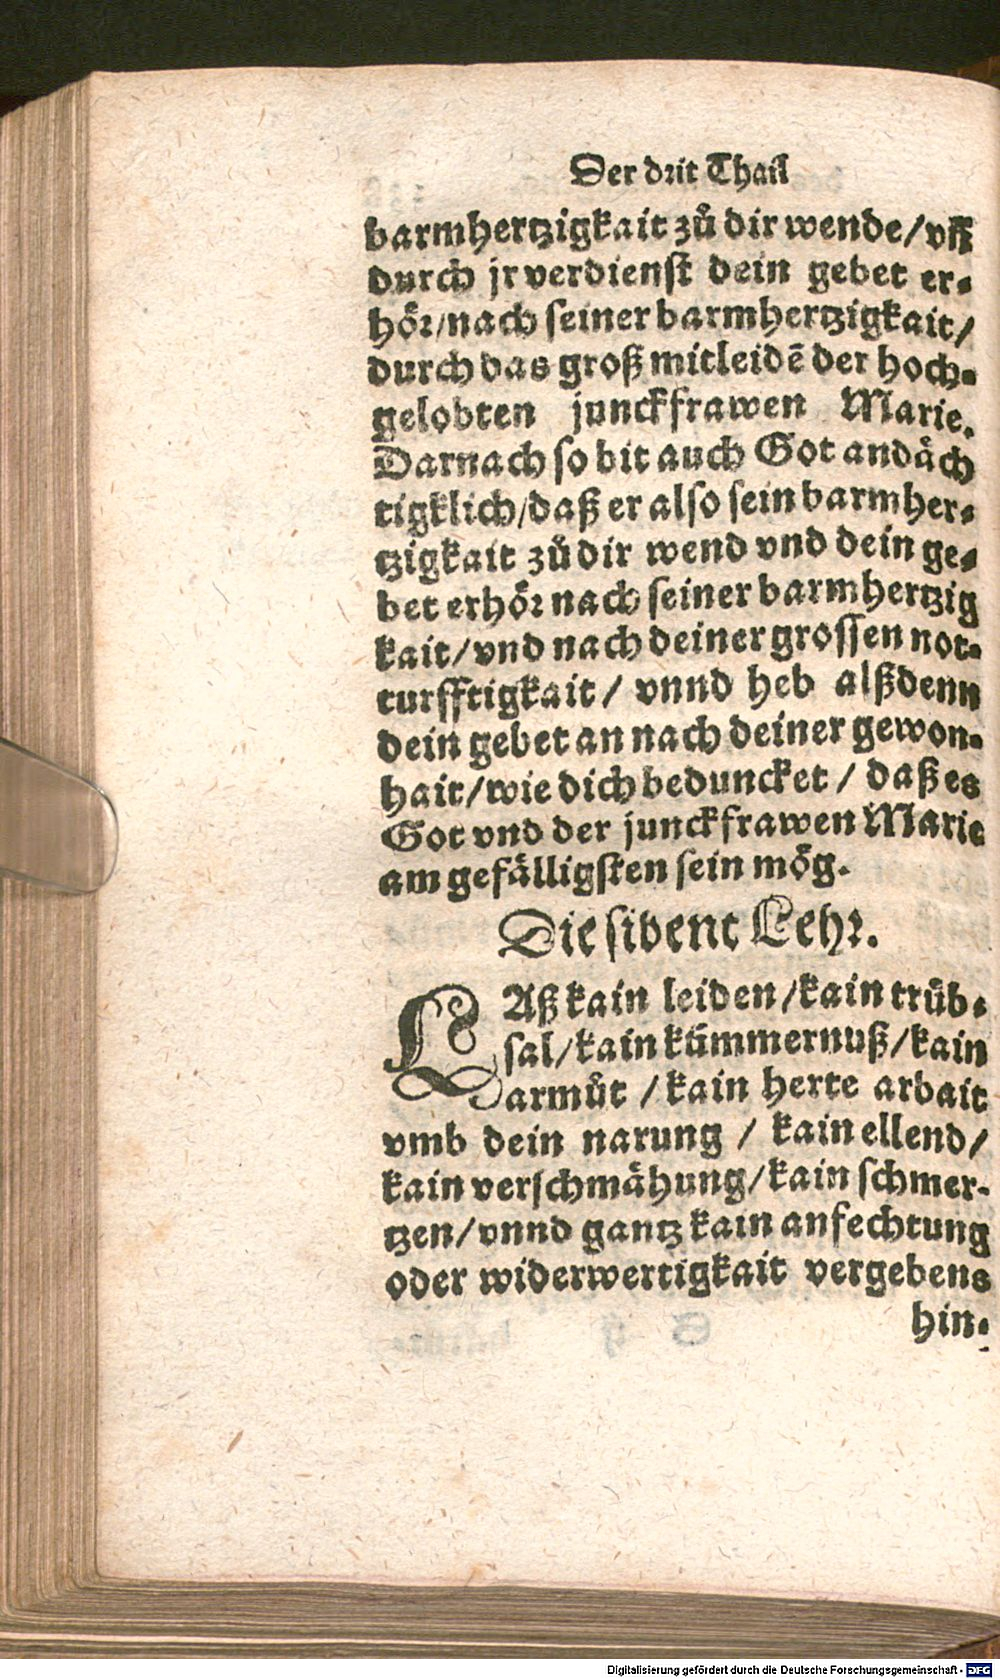 Der drit Thail
barmhertzigkait zů dir wende/vñ
durch jr verdienst dein gebet er⸗
hör/nach seiner barmhertzigkait/
durch das groß mitleidẽ der hoch⸗
gelobten junckfrawen Marie.
Darnach so bit auch Got andäch
tigklich/daß er also sein barmher⸗
tzigkait zů dir wend vnd dein ge⸗
bet erhör nach seiner barmhertzig
kait/vnd nach deiner grossen not⸗
turfftigkait/ vnnd heb alßdenn
dein gebet an nach deiner gewon⸗
hait/wie dich beduncket / daß es
Got vnd der junckfrawen Marie
am gefälligsten sein mög.
Die sibent Lehr.
LAß kain leiden/kain trüb⸗
sal/kain kümmernuß/kain
armůt /kain herte arbait
vmb dein narung / kain ellend/
kain verschmähung/kain schmer⸗
tzen/vnnd gantz kain anfechtung
oder widerwertigkait vergebens
hin⸗
Digitalisierung gefördert durch die Deutsche Forschungsgemeinschaft - DFG